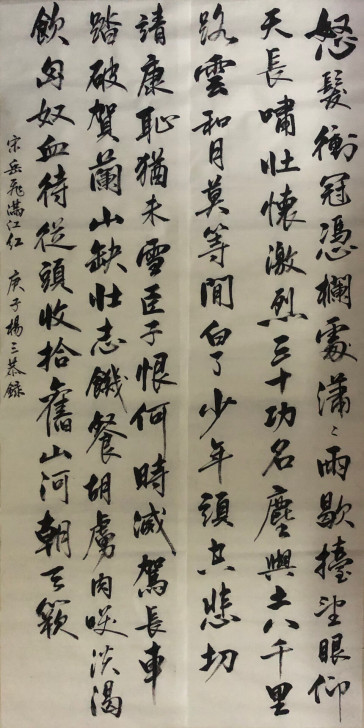 怒髮衝冠憑欄處瀟〻雨歇擡望眼仰
天長嘯壯懷激烈三十功名塵與土八千里
路雲和月莫等閒白了少年頭空悲切
靖康恥猶未雪臣子恨何時滅駕長車
踏破賀蘭山缺壯志饑餐胡虜肉笑談渴
飲匈奴血待從頭收拾舊山河朝天闕
宋岳飛滿江紅 庚子楊三恭錄